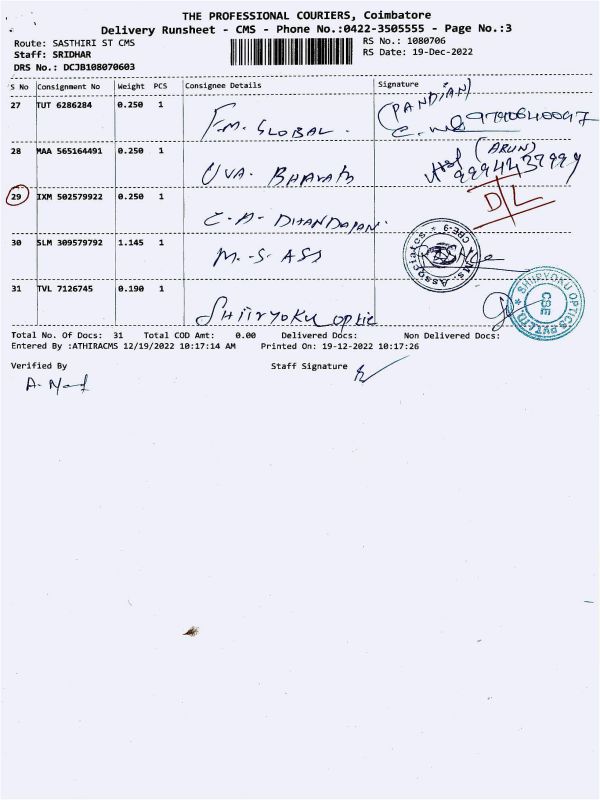 THE PROFESSIONAL COURIERS, Coimbatore
Delivery Runsheet - CMS - Phone No.:0422-3505555 - Page No.:3
Route: SASTHIRI ST CMS
RS No.: 1080706
Staff: SRIDHAR
RS Date: 19-Dec-2022
DRS No.: DCJB108070603
S No Consignment No Weight PCS Consignee Details Signature
27 TUT 6286284 0.250 1
F.M. GLOBAL.
(PANDIAN)
28 MAA 565164491 0.250 1
UVA. BHARATH
(ARUN)
29 IXM 502579922 0.250 1
D/L
30 SLM 309579792 1.145 1
M.-S- ASS
Ms. Associates * CBE-9 *
31 TVL 7126745 0.190 1
SHIIRYOKU OPTIC
* SHIIRYOKU OPTICS PVT.LTD.
CBE
Total No. Of Docs: 31 Total COD Amt: 0.00 Delivered Docs: Non Delivered Docs:
Entered By :ATHIRACMS 12/19/2022 10:17:14 AM Printed On: 19-12-2022 10:17:26
Verified By Staff Signature